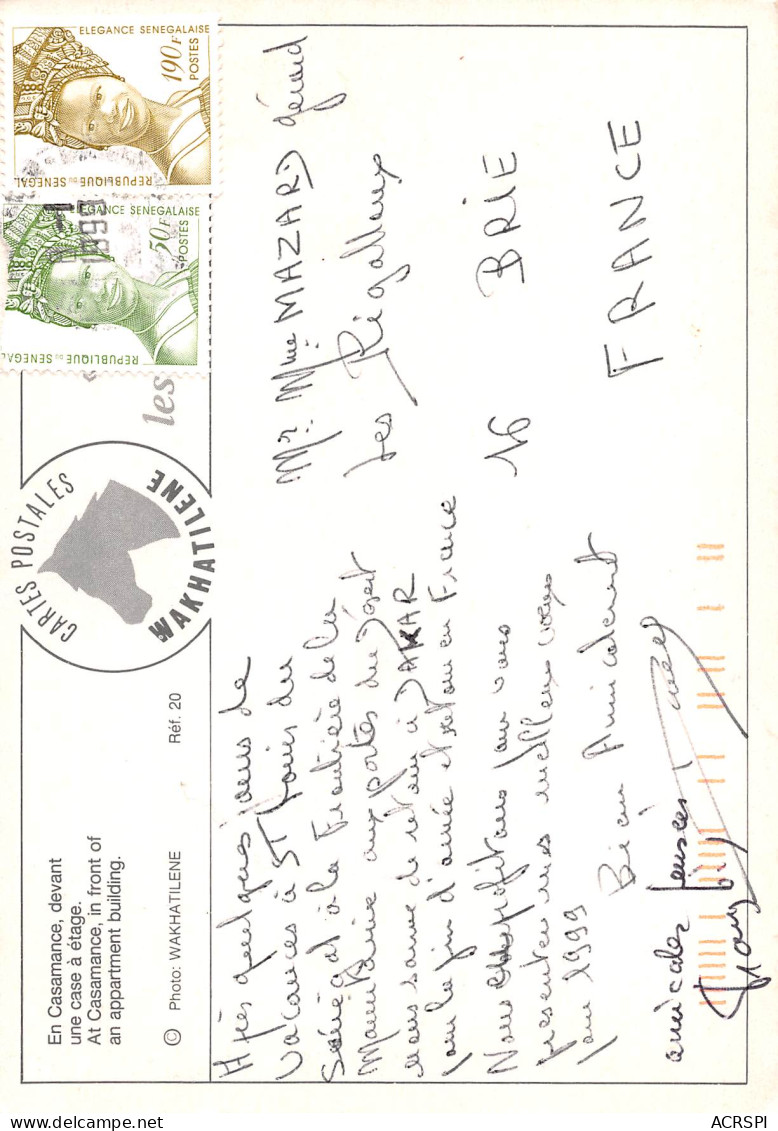 En Casamance, devant
une case à étage.
At Casamance, in front of
an appartment building.
© Photo: WAKHATILENE Réf. 20
CARTES POSTALES
WAKHATILENE
les
ELEGANCE SENEGALAISE
190F
POSTES
REPUBLIQUE DU SENEGAL
ELEGANCE SENEGALAISE
50F
POSTES
REPUBLIQUE DU SENEGAL
1999
Après quelques jours de
vacances à ST Louis du
Sénégal à la Frontière de la
Mauritanie aux portes du désert
nous sommes de retour à DAKAR
pour la fin d'année et retour en France
Nous en profitons pour vous
présenter nos meilleurs vœux
pour 1999
Bien Amicalement
amicales pensées
Mr. Mme MAZARD gérard
Les Rigalloux
16 BRIE
FRANCE
ACRSPI